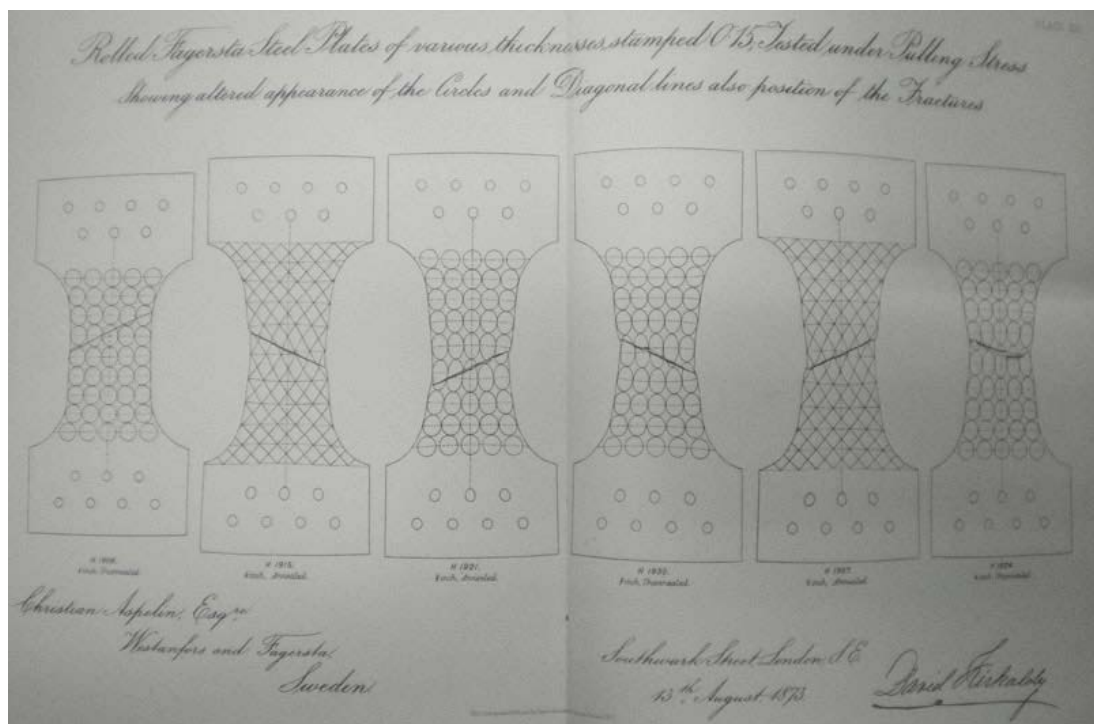 Rolled Fagersta Steel Plates of various thicknesses, stamped 0·15, Tested under Pulling Stress
Showing altered appearance of the Circles and Diagonal lines also position of the Fractures
Unannealed.
H 1921.
Annealed.
Annealed.
Unannealed.
Annealed.
Christian Aspelin, Esqre
Westanfors and Fagersta,
Sweden
Southwark Street London, S.E.
13th August 1873.
David Kirkaldy